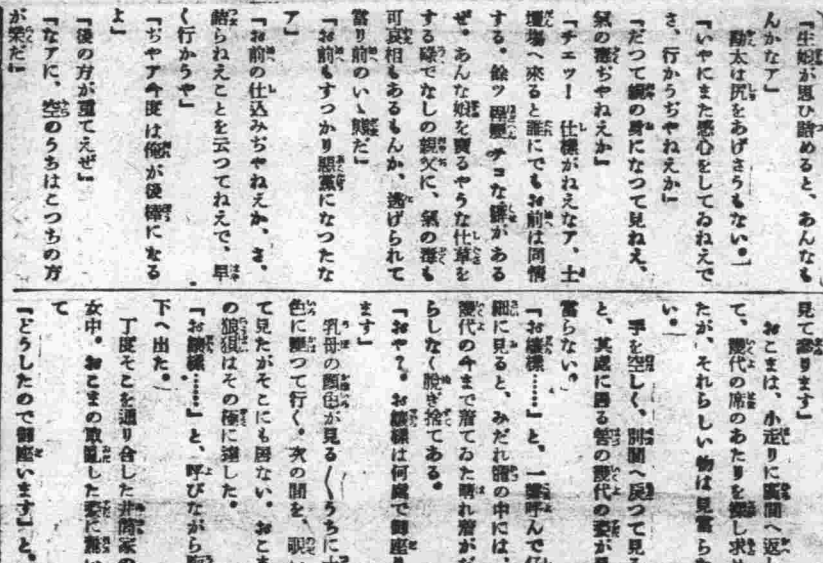 「生娘が思ひ詰めると、あんなも
んかなア」
勘太は尻をあげさうもない。
「いやにまた感心をしてゐねえで
さ、行かうぢやねえか」
「だつて親の身になつて見ねえ、
氣の毒ぢやねえか」
「チエッ！　仕樣がねえなア、土
壇場へ來ると誰にでもお前は同情
する。餘ツ程變チコな癖がある
ぜ。あんな娘を賣るやうな仕草を
する碌でなしの親父に、氣の毒も
可哀相もあるもんか、逃げられて
當り前のいゝ態だ」
「お前もすつかり惡黨になつたな
ア」
「お前の仕込みぢやねえか、さ、
詰らねえことを云つてねえで、早
く行かうや」
「ぢやア今度は俺が後棒になる
よ」
「後の方が重てえぜ」
「なアに、空のうちはこつちの方
が樂だ」
見て參ります」
おこまは、小走りに廣間へ返し
て、幾代の席のあたりを探し求め
たが、それらしい物は見當らな
い。
手を空しく、別間へ戻つて見る
と、其處に居る筈の幾代の姿が見
當らない。
「お孃樣……」と、一聲呼んで仔
細に見ると、みだれ箱の中には、
幾代の今まで着てゐた晴れ着がだ
らしなく脱ぎ捨てある。
「おや？。お孃樣は何處で御座り
ます」
乳母の顏色が見る〱うちに土
色に變つて行く。次の間を、覗い
て見たがそこにも居ない。おこま
の狼狽はその極に達した。
「お孃樣……」と、呼びながら
下へ出た。
丁度そこを通り合した井筒家の
女中。おこまの取亂した姿に驚い
て
「どうしたので御座います」と、